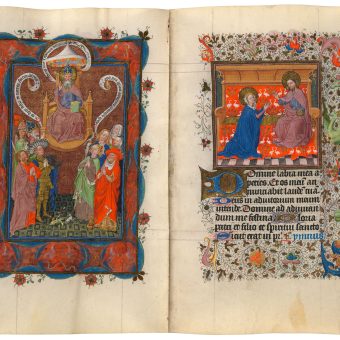 Domine labia mea a
peries. Et os meū an
nunciabit laudē tuā
Deus in adiutorium meum
intende. Domine ad adiuuan
dum me festina. Gloria
patri et filio et spiritui sancto
Sicut erat in pr. Ympnus